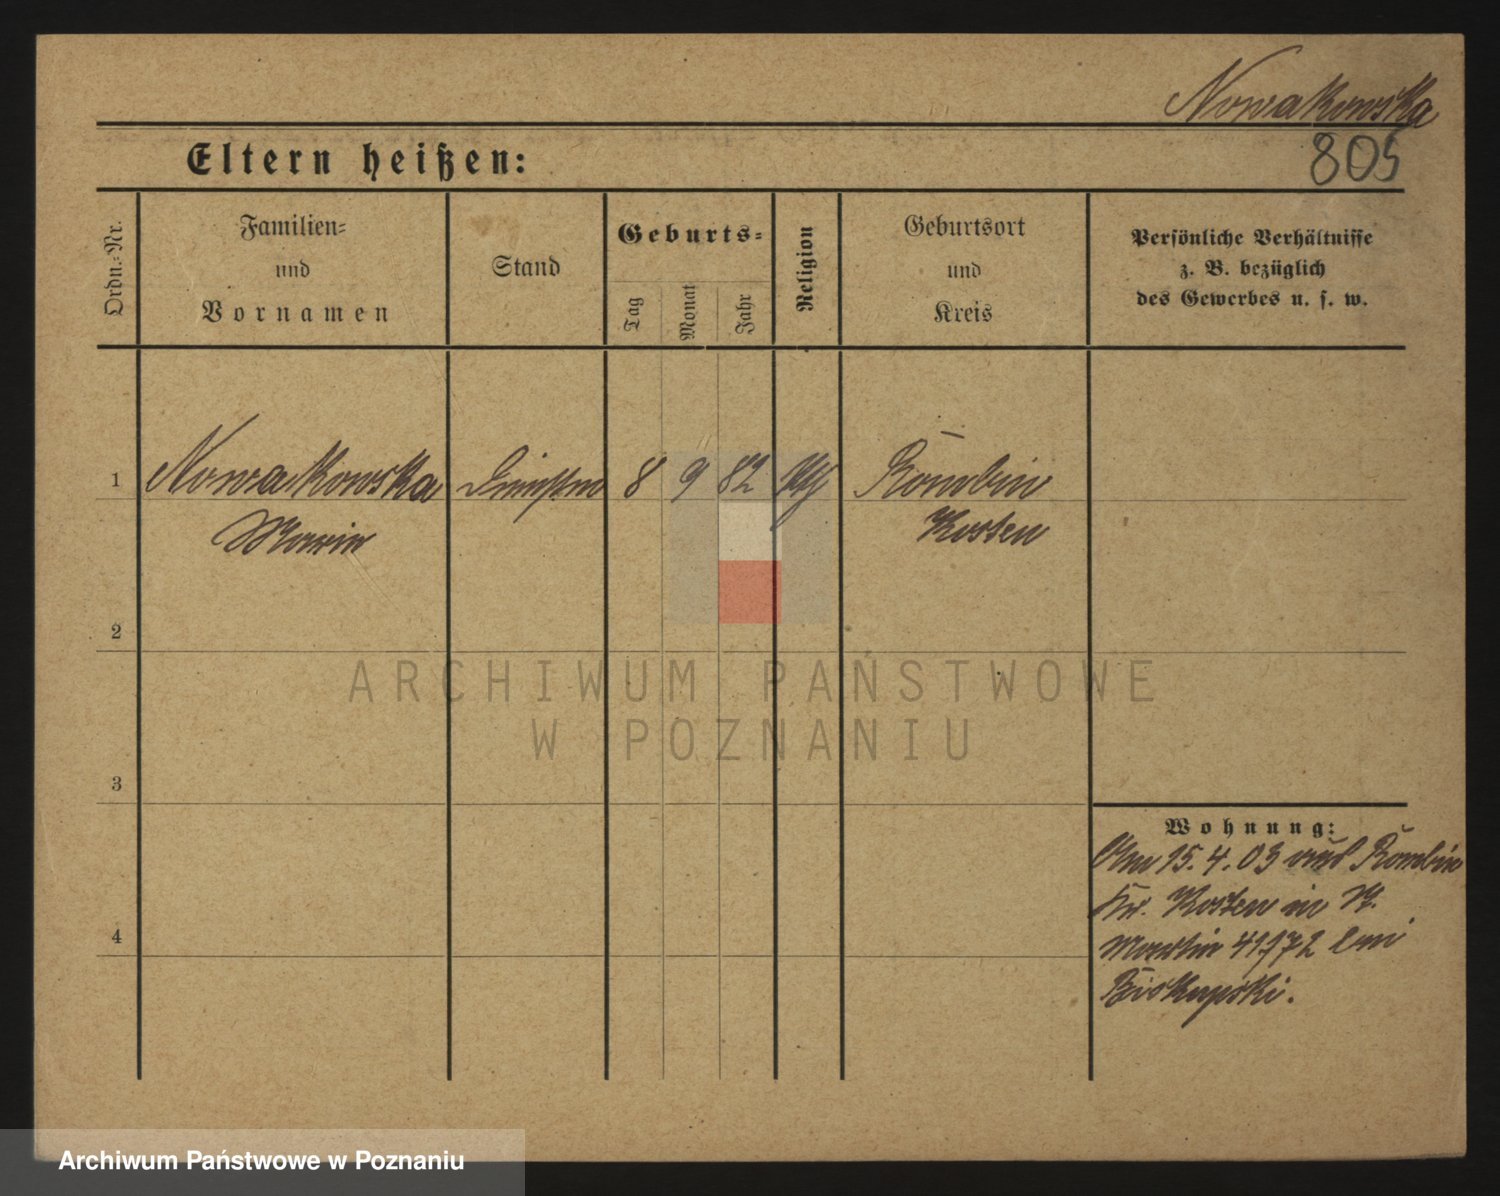 Nowakowska
805
Eltern heißen:
Ordn.-Nr.
Familien-
und
Vornamen
Stand
Geburts-
Tag
Monat
Jahr
Religion
Geburtsort
und
Kreis
Persönliche Verhältnisse
z. B. bezüglich
des Gewerbes u. s. w.
1 Nowakowska 8 9 82 Rombin
Marie Kosten
2
3
4
Wohnung:
Am 15.4.03 aus Rombin
Kr. Kosten in St.
Martin 41/72 bei
Biskupski.
ARCHIWUM PAŃSTWOWE
W POZNANIU
Archiwum Państwowe w Poznaniu